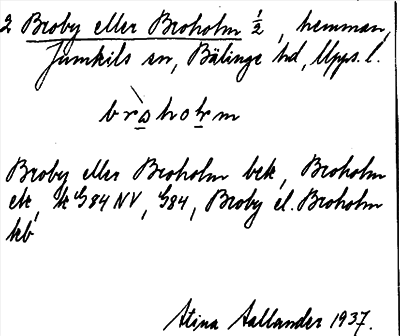 2 Broby eller Broholm ½, hemman,
Jumkils sn, Bälinge hd, Upps. l.
bròhoɭm
Broby eller Broholm bek, Broholm
ek, k G84 NV, G84, Broby el. Broholm
kb
Stina Sallander 1937.